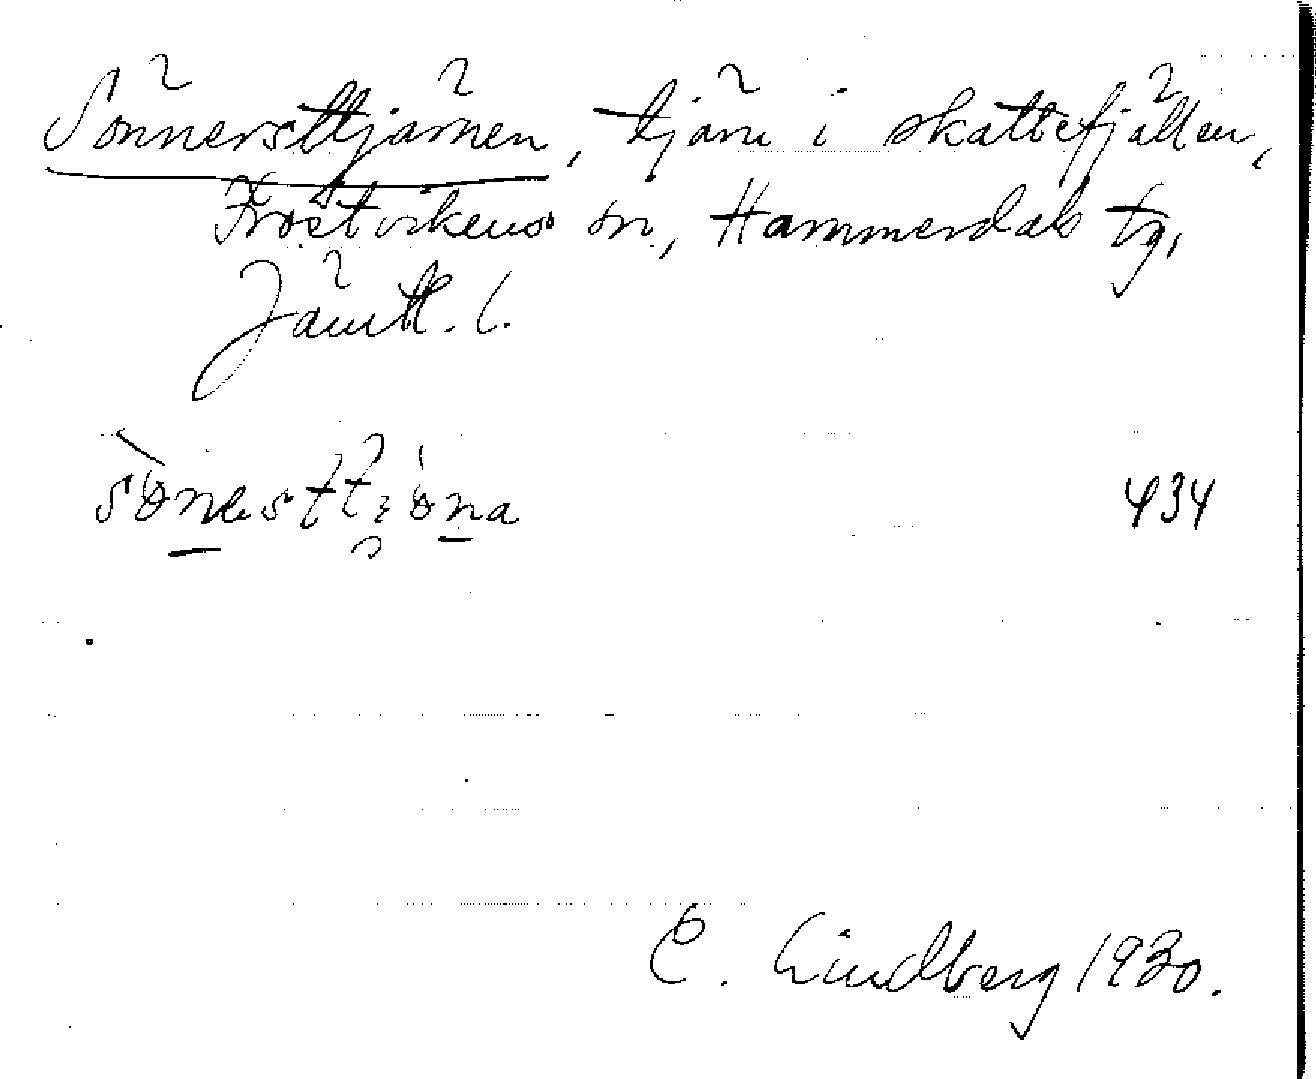 Sönnersttjärnen, tjärn i skattefjällen,
Frostvikens sn, Hammerdals tg,
Jämtl. l.
434
E. Lindberg 1930.